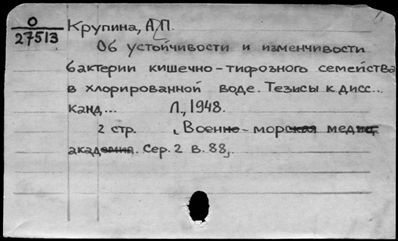 О
27513
Крупина, А.П.
Об устойчивости и изменчивости
бактерии кишечно-тифозного семейства
в хлорированной воде. Тезисы к дисс...
канд... Л., 1948.
2 стр. (Военно-морская мед
академия. Сер. 2 в. 88,.